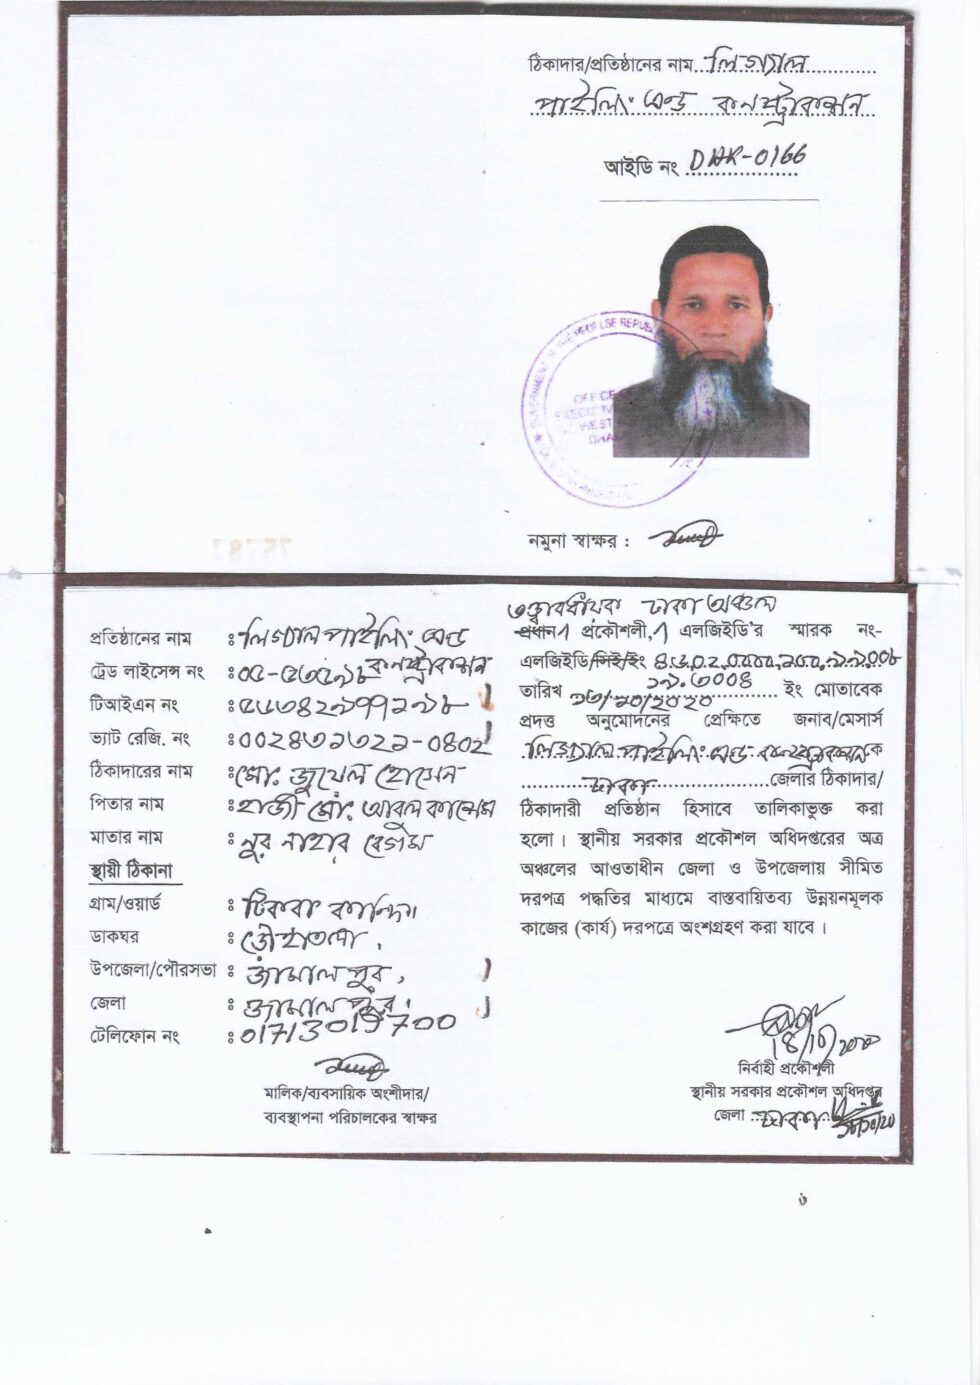 ঠিকাদার/প্রতিষ্ঠানের নাম লিগ্যাল
পাইলিং এন্ড কনস্ট্রাকশন
আইডি নং DHK-0166
GOVERNMENT THE PEOPLE'S REPUBL
OFFICE
EXECUTIV
DHA
নমুনা স্বাক্ষর :
75787
প্রতিষ্ঠানের নাম : লিগ্যাল পাইলিং এন্ড
কনস্ট্রাকশন
ট্রেড লাইসেন্স নং :
টিআইএন নং :
ভ্যাট রেজি. নং :
ঠিকাদারের নাম : মো: জুয়েল হোসেন
পিতার নাম : হাজী মো: আবুল কাশেম
মাতার নাম : নুর নাহার বেগম
স্থায়ী ঠিকানা
গ্রাম/ওয়ার্ড :
ডাকঘর :
উপজেলা/পৌরসভা : জামালপুর,
জেলা : জামালপুর।
টেলিফোন নং :
মালিক/ব্যবসায়িক অংশীদার/
ব্যবস্থাপনা পরিচালকের স্বাক্ষর
তত্ত্বাবধায়ক ঢাকা অঞ্চল
প্রধান প্রকৌশলী, এলজিইডি'র স্মারক নং-
এলজিইডি/সিই/ইং
তারিখ ১৩/১০/২০২০ ইং মোতাবেক
প্রদত্ত অনুমোদনের প্রেক্ষিতে জনাব/মেসার্স
লিগ্যাল পাইলিং এন্ড কনস্ট্রাকশন কে
ঢাকা জেলার ঠিকাদার/
ঠিকাদারী প্রতিষ্ঠান হিসাবে তালিকাভুক্ত করা
হলো। স্থানীয় সরকার প্রকৌশল অধিদপ্তরের অত্র
অঞ্চলের আওতাধীন জেলা ও উপজেলায় সীমিত
দরপত্র পদ্ধতির মাধ্যমে বাস্তবায়িতব্য উন্নয়নমূলক
কাজের (কার্য) দরপত্রে অংশগ্রহণ করা যাবে।
18/10/2020
নির্বাহী প্রকৌশলী
স্থানীয় সরকার প্রকৌশল অধিদপ্তর
জেলা ঢাকা